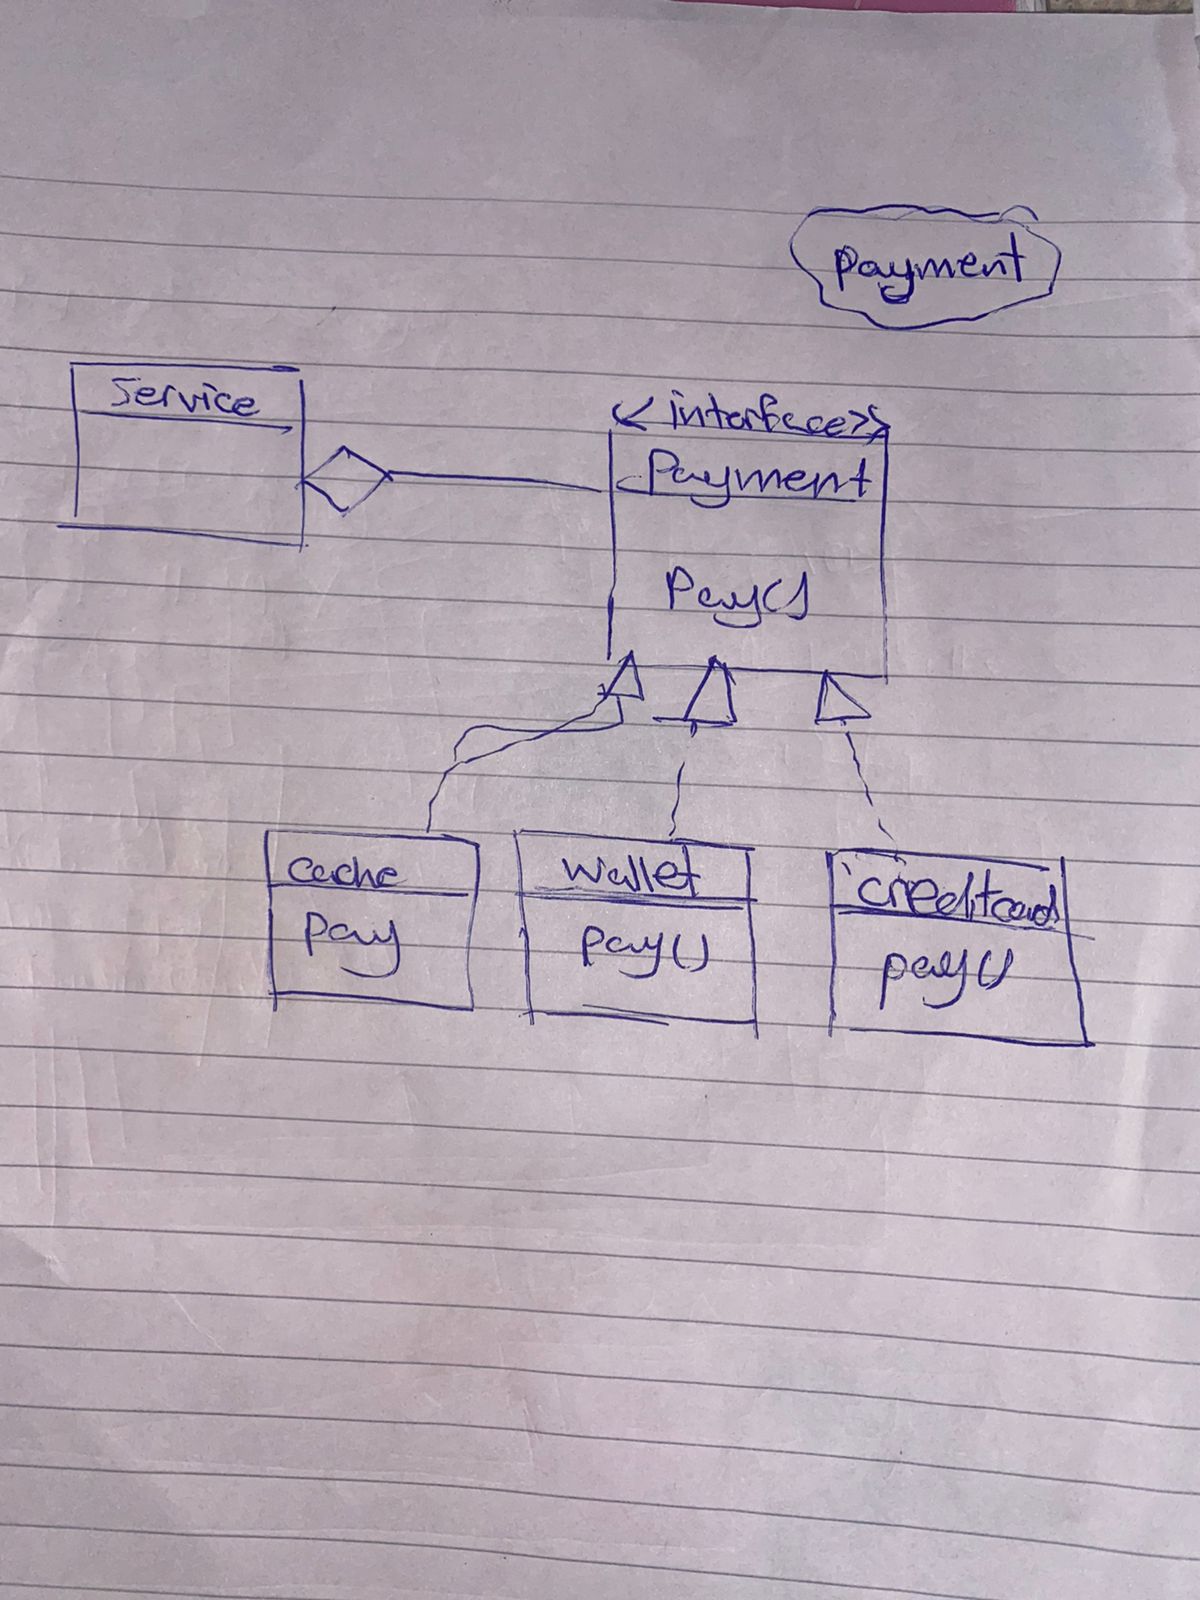 payment
Service
<interface>>
Payment
Pay()
cache
pay
wallet
pay()
creditcard
pay()